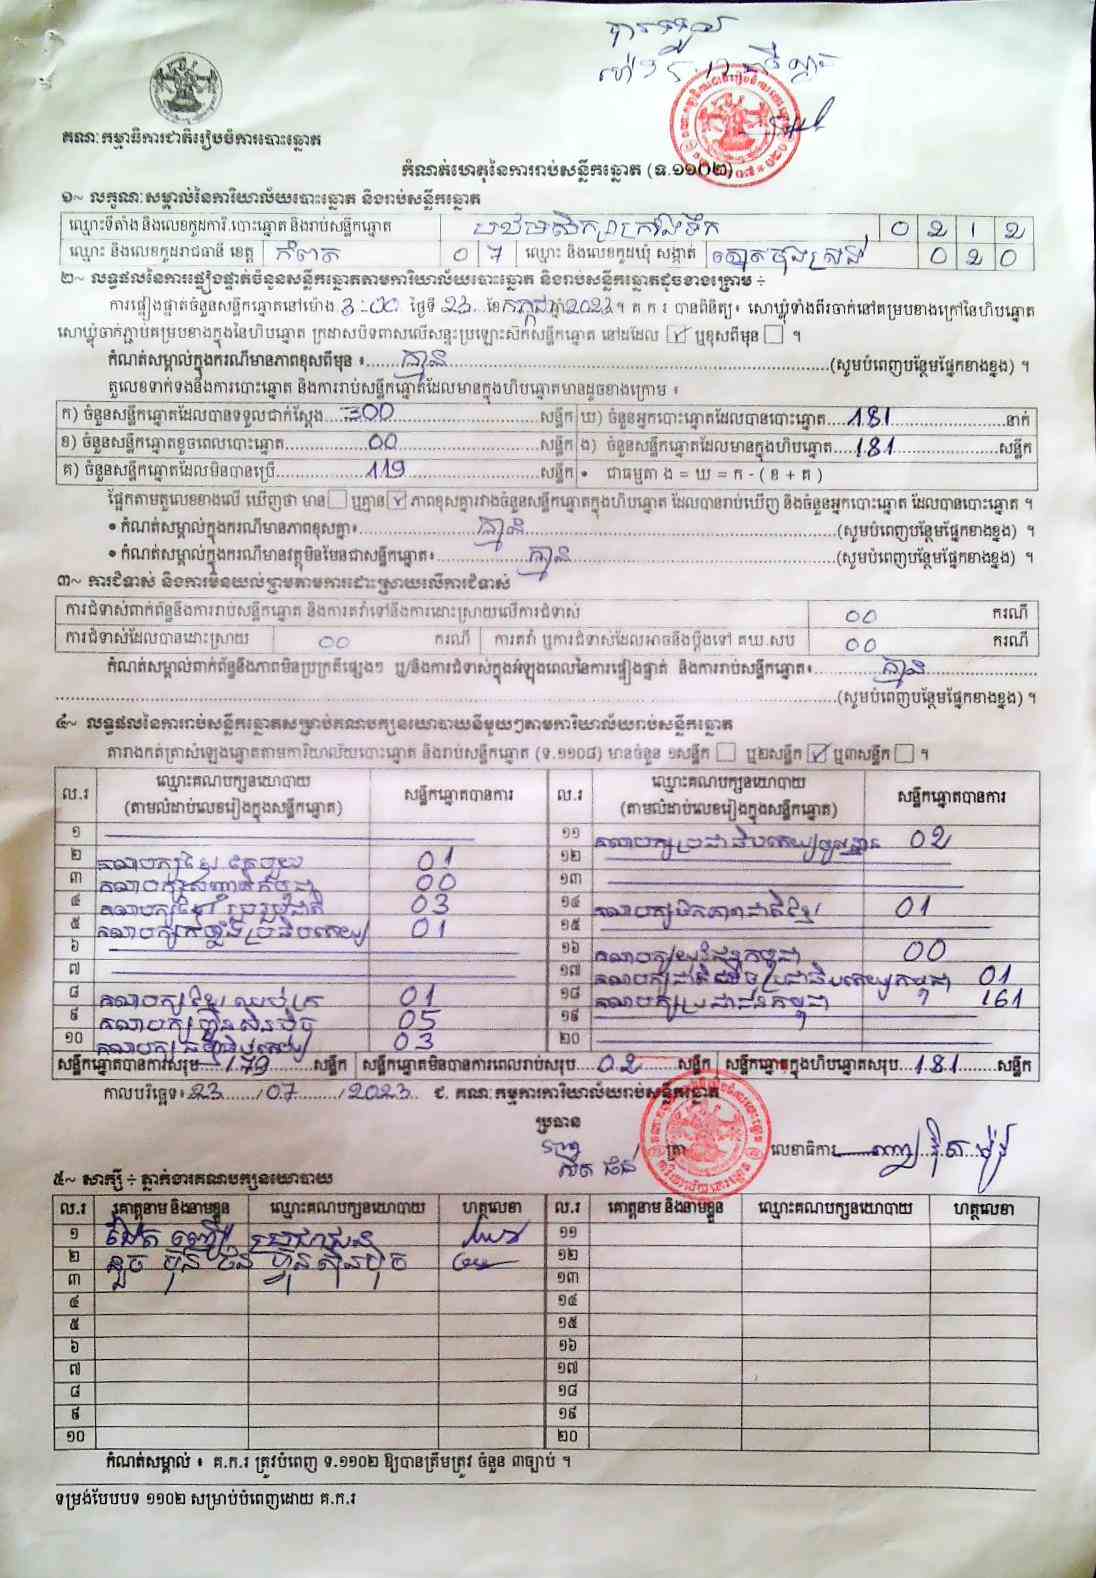 គណៈកម្មាធិការជាតិរៀបចំការបោះឆ្នោត
កំណត់ហេតុនៃការរាប់សន្លឹកឆ្នោត (ទ.១១០២)
១~ លក្ខណៈសម្គាល់នៃការិយាល័យបោះឆ្នោត និងរាប់សន្លឹកឆ្នោត
ឈ្មោះទីតាំង និងលេខកូដការិ.បោះឆ្នោត និងរាប់សន្លឹកឆ្នោត បឋមសិក្សា 0 2 1 2
ឈ្មោះ និងលេខកូដរាជធានី ខេត្ត កំពត 0 7 ឈ្មោះ និងលេខកូដឃុំ សង្កាត់ 0 2 0
២~ លទ្ធផលនៃការផ្ទៀងផ្ទាត់ចំនួនសន្លឹកឆ្នោតតាមការិយាល័យបោះឆ្នោត និងរាប់សន្លឹកឆ្នោតដូចខាងក្រោម ÷
ការផ្ទៀងផ្ទាត់ចំនួនសន្លឹកឆ្នោតនៅម៉ោង 3:00 ថ្ងៃទី 23 ខែ កក្កដា ឆ្នាំ 2023 ។ គ.ក.រ បានពិនិត្យ៖ សោឃ្លុំទាំងពីរចាក់នៅគម្របខាងក្រៅនៃហិបឆ្នោត
សោឃ្លុំចាក់ភ្ជាប់គម្របខាងក្នុងនៃហិបឆ្នោត ក្រដាសបិទពាសលើសន្ទះប្រឡោះស៊កសន្លឹកឆ្នោត នៅដដែល ☑ ឬខុសពីមុន ☐ ។
កំណត់សម្គាល់ក្នុងករណីមានភាពខុសពីមុន ៖ គ្មាន (សូមបំពេញបន្ថែមផ្នែកខាងខ្នង) ។
តួលេខទាក់ទងនឹងការបោះឆ្នោត និងការរាប់សន្លឹកឆ្នោតដែលមានក្នុងហិបឆ្នោតមានដូចខាងក្រោម ៖
ក) ចំនួនសន្លឹកឆ្នោតដែលបានទទួលជាក់ស្តែង 300 សន្លឹក ឃ) ចំនួនអ្នកបោះឆ្នោតដែលបានបោះឆ្នោត 181 នាក់
ខ) ចំនួនសន្លឹកឆ្នោតខូចពេលបោះឆ្នោត 00 សន្លឹក ង) ចំនួនសន្លឹកឆ្នោតដែលមានក្នុងហិបឆ្នោត 181 សន្លឹក
គ) ចំនួនសន្លឹកឆ្នោតដែលមិនបានប្រើ 119 សន្លឹក • ជាធម្មតា ង = ឃ = ក - ( ខ + គ )
ផ្អែកតាមតួលេខខាងលើ ឃើញថា មាន ☐ ឬគ្មាន ☑ ភាពខុសគ្នារវាងចំនួនសន្លឹកឆ្នោតក្នុងហិបឆ្នោត ដែលបានរាប់ឃើញ និងចំនួនអ្នកបោះឆ្នោត ដែលបានបោះឆ្នោត ។
• កំណត់សម្គាល់ក្នុងករណីមានភាពខុសគ្នា៖ គ្មាន (សូមបំពេញបន្ថែមផ្នែកខាងខ្នង) ។
• កំណត់សម្គាល់ក្នុងករណីមានវត្ថុមិនមែនជាសន្លឹកឆ្នោត៖ គ្មាន (សូមបំពេញបន្ថែមផ្នែកខាងខ្នង) ។
៣~ ការជំទាស់ និងការមិនយល់ព្រមតាមការដោះស្រាយលើការជំទាស់
ការជំទាស់ពាក់ព័ន្ធនឹងការរាប់សន្លឹកឆ្នោត និងការតវ៉ាទៅនឹងការដោះស្រាយលើការជំទាស់ 00 ករណី
ការជំទាស់ដែលបានដោះស្រាយ 00 ករណី ការតវ៉ា ឬការជំទាស់ដែលអាចនឹងប្តឹងទៅ គឃ.សប 00 ករណី
កំណត់សម្គាល់ពាក់ព័ន្ធនឹងភាពមិនប្រក្រតីផ្សេងៗ ឬ/និងការជំទាស់ក្នុងអំឡុងពេលនៃការផ្ទៀងផ្ទាត់ និងការរាប់សន្លឹកឆ្នោត៖ គ្មាន
(សូមបំពេញបន្ថែមផ្នែកខាងខ្នង) ។
៤~ លទ្ធផលនៃការរាប់សន្លឹកឆ្នោតសម្រាប់គណបក្សនយោបាយនីមួយៗតាមការិយាល័យរាប់សន្លឹកឆ្នោត
តារាងកត់ត្រាសំឡេងឆ្នោតតាមការិយាល័យបោះឆ្នោត និងរាប់សន្លឹកឆ្នោត (ទ.១១០៨) មានចំនួន ១សន្លឹក ☐ ឬ២សន្លឹក ☑ ឬ៣សន្លឹក ☐ ។
ល.រ ឈ្មោះគណបក្សនយោបាយ (តាមលំដាប់លេខរៀងក្នុងសន្លឹកឆ្នោត) សន្លឹកឆ្នោតបានការ ល.រ ឈ្មោះគណបក្សនយោបាយ (តាមលំដាប់លេខរៀងក្នុងសន្លឹកឆ្នោត) សន្លឹកឆ្នោតបានការ
១ ១១ គណបក្សប្រជាធិបតេយ្យមូលដ្ឋាន 02
២ គណបក្សខ្មែរតែមួយ 01 ១២
៣ គណបក្សសញ្ជាតិកម្ពុជា 00 ១៣
៤ គណបក្សខ្មែររួបរួមជាតិ 03 ១៤ គណបក្សមាតុភូមិខ្មែរ 01
៥ គណបក្សកម្លាំងប្រជាធិបតេយ្យ 01 ១៥
៦ ១៦ គណបក្សយុវជនកម្ពុជា 00
៧ ១៧ គណបក្សជនជាតិដើមប្រជាធិបតេយ្យកម្ពុជា 01
៨ គណបក្សខ្មែរឈប់ក្រ 01 ១៨ គណបក្សប្រជាជនកម្ពុជា 161
៩ គណបក្សហ្វ៊ុនស៊ិនប៉ិច 05 ១៩
១០ គណបក្សធម្មាធិបតេយ្យ 03 ២០
សន្លឹកឆ្នោតបានការសរុប 179 សន្លឹក សន្លឹកឆ្នោតមិនបានការពេលរាប់សរុប 02 សន្លឹក សន្លឹកឆ្នោតក្នុងហិបឆ្នោតសរុប 181 សន្លឹក
កាលបរិច្ឆេទ៖ 23/07/2023 ជ. គណៈកម្មការការិយាល័យរាប់សន្លឹកឆ្នោត
ប្រធាន
ត្រា លេខាធិការ
៥~ សាក្សី ÷ ភ្នាក់ងារគណបក្សនយោបាយ
ល.រ គោត្តនាម និងនាមខ្លួន ឈ្មោះគណបក្សនយោបាយ ហត្ថលេខា ល.រ គោត្តនាម និងនាមខ្លួន ឈ្មោះគណបក្សនយោបាយ ហត្ថលេខា
១ ប្រជាជន ១១
២ ហ្វ៊ុនស៊ិនប៉ិច ១២
៣ ១៣
៤ ១៤
៥ ១៥
៦ ១៦
៧ ១៧
៨ ១៨
៩ ១៩
១០ ២០
កំណត់សម្គាល់ ៖ គ.ក.រ ត្រូវបំពេញ ទ.១១០២ ឱ្យបានត្រឹមត្រូវ ចំនួន ៣ច្បាប់ ។
ទម្រង់បែបបទ ១១០២ សម្រាប់បំពេញដោយ គ.ក.រ